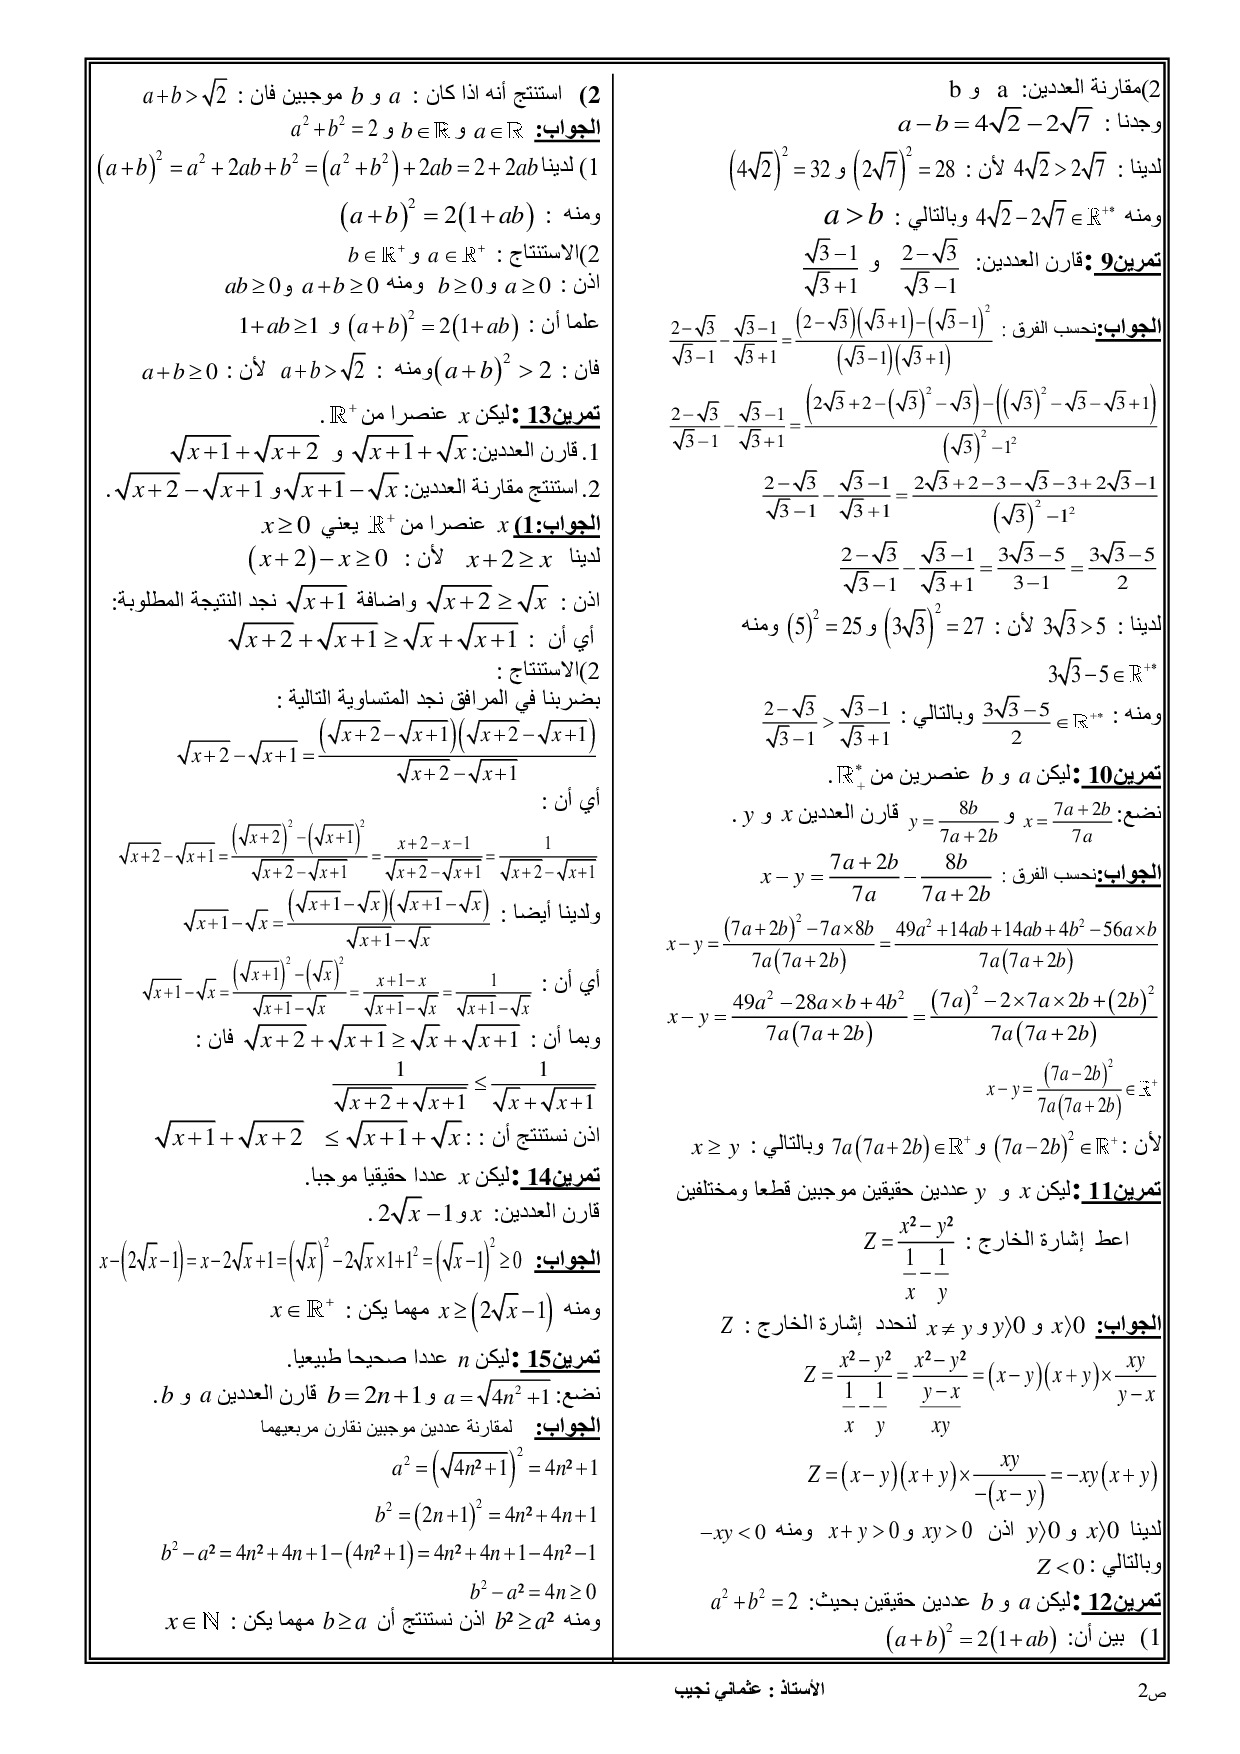 2)مقارنة العددين: a و b
وجدنا : a − b = 4√2 − 2√7
لدينا : 4√2 > 2√7 لأن : (2√7)² = 28 و (4√2)² = 32
ومنه 4√2 − 2√7 ∈ ℝ⁺* وبالتالي : a > b
تمرين9 :قارن العددين: (2−√3)/(√3−1) و (√3−1)/(√3+1)
الجواب:نحسب الفرق : (2−√3)/(√3−1) − (√3−1)/(√3+1) = ((2−√3)(√3+1)−(√3−1)²)/((√3−1)(√3+1))
(2−√3)/(√3−1) − (√3−1)/(√3+1) = ((2√3+2−(√3)²−√3)−((√3)²−√3−√3+1))/((√3)²−1²)
(2−√3)/(√3−1) − (√3−1)/(√3+1) = (2√3+2−3−√3−3+2√3−1)/((√3)²−1²)
(2−√3)/(√3−1) − (√3−1)/(√3+1) = (3√3−5)/(3−1) = (3√3−5)/2
لدينا : 3√3 > 5 لأن : (3√3)² = 27 و (5)² = 25 ومنه
3√3 − 5 ∈ ℝ⁺*
ومنه : (3√3−5)/2 ∈ ℝ⁺* وبالتالي : (2−√3)/(√3−1) > (√3−1)/(√3+1)
تمرين10 :ليكن a و b عنصرين من ℝ₊* .
نضع: x = (7a+2b)/7a و y = 8b/(7a+2b) قارن العددين x و y .
الجواب:نحسب الفرق : x − y = (7a+2b)/7a − 8b/(7a+2b)
x − y = ((7a+2b)²−7a×8b)/(7a(7a+2b)) = (49a²+14ab+14ab+4b²−56a×b)/(7a(7a+2b))
x − y = (49a²−28a×b+4b²)/(7a(7a+2b)) = ((7a)²−2×7a×2b+(2b)²)/(7a(7a+2b))
x − y = (7a−2b)²/(7a(7a+2b)) ∈ ℝ⁺
لأن : (7a−2b)² ∈ ℝ⁺ و 7a(7a+2b) ∈ ℝ⁺ وبالتالي : x ≥ y
تمرين11 :ليكن x و y عددين حقيقين موجبين قطعا ومختلفين
اعط إشارة الخارج : Z = (x²−y²)/(1/x − 1/y)
الجواب: x⟩0 و y⟩0 و x ≠ y لنحدد إشارة الخارج : Z
Z = (x²−y²)/(1/x − 1/y) = (x²−y²)/((y−x)/xy) = (x−y)(x+y)× xy/(y−x)
Z = (x−y)(x+y)× xy/(−(x−y)) = −xy(x+y)
لدينا x⟩0 و y⟩0 اذن xy > 0 و x+y > 0 ومنه −xy < 0
وبالتالي : Z < 0
تمرين12 :ليكن a و b عددين حقيقين بحيث: a² + b² = 2
1) بين أن: (a+b)² = 2(1+ab)
2) استنتج أنه اذا كان : a و b موجبين فان : a+b > √2
الجواب: a ∈ ℝ و b ∈ ℝ و a² + b² = 2
1) لدينا (a+b)² = a² + 2ab + b² = (a² + b²) + 2ab = 2 + 2ab
ومنه : (a+b)² = 2(1+ab)
2)الاستنتاج : a ∈ ℝ⁺ و b ∈ ℝ⁺
اذن : a ≥ 0 و b ≥ 0 ومنه a+b ≥ 0 و ab ≥ 0
علما أن : (a+b)² = 2(1+ab) و 1+ab ≥ 1
فان : (a+b)² > 2 ومنه : a+b > √2 لأن : a+b ≥ 0
تمرين13 :ليكن x عنصرا من ℝ⁺ .
1. قارن العددين: √(x+1)+√x و √(x+1)+√(x+2)
2. استنتج مقارنة العددين: √(x+1)−√x و √(x+2)−√(x+1) .
الجواب:1) x عنصرا من ℝ⁺ يعني x ≥ 0
لدينا x+2 ≥ x لأن : (x+2)−x ≥ 0
اذن : √(x+2) ≥ √x واضافة √(x+1) نجد النتيجة المطلوبة:
أي أن : √(x+2)+√(x+1) ≥ √x+√(x+1)
2)الاستنتاج :
بضربنا في المرافق نجد المتساوية التالية :
√(x+2)−√(x+1) = (√(x+2)−√(x+1))(√(x+2)−√(x+1))/(√(x+2)−√(x+1))
أي أن :
√(x+2)−√(x+1) = ((√(x+2))²−(√(x+1))²)/(√(x+2)−√(x+1)) = (x+2−x−1)/(√(x+2)−√(x+1)) = 1/(√(x+2)−√(x+1))
ولدينا أيضا : √(x+1)−√x = (√(x+1)−√x)(√(x+1)−√x)/(√(x+1)−√x)
أي أن : √(x+1)−√x = ((√(x+1))²−(√x)²)/(√(x+1)−√x) = (x+1−x)/(√(x+1)−√x) = 1/(√(x+1)−√x)
وبما أن : √(x+2)+√(x+1) ≥ √x+√(x+1) فان :
1/(√(x+2)+√(x+1)) ≤ 1/(√x+√(x+1))
اذن نستنتج أن : : √(x+1)+√(x+2) ≤ √(x+1)+√x
تمرين14 :ليكن x عددا حقيقيا موجبا.
قارن العددين: x و 2√x−1 .
الجواب: x−(2√x−1) = x−2√x+1 = (√x)²−2√x×1+1² = (√x−1)² ≥ 0
ومنه x ≥ (2√x−1) مهما يكن : x ∈ ℝ⁺
تمرين15 :ليكن n عددا صحيحا طبيعيا.
نضع: a = √(4n²+1) و b = 2n+1 قارن العددين a و b.
الجواب: لمقارنة عددين موجبين نقارن مربعيهما
a² = (√(4n²+1))² = 4n²+1
b² = (2n+1)² = 4n²+4n+1
b²−a² = 4n²+4n+1−(4n²+1) = 4n²+4n+1−4n²−1
b²−a² = 4n ≥ 0
ومنه b² ≥ a² اذن نستنتج أن b ≥ a مهما يكن : x ∈ ℕ
الأستاذ : عثماني نجيب
ص2